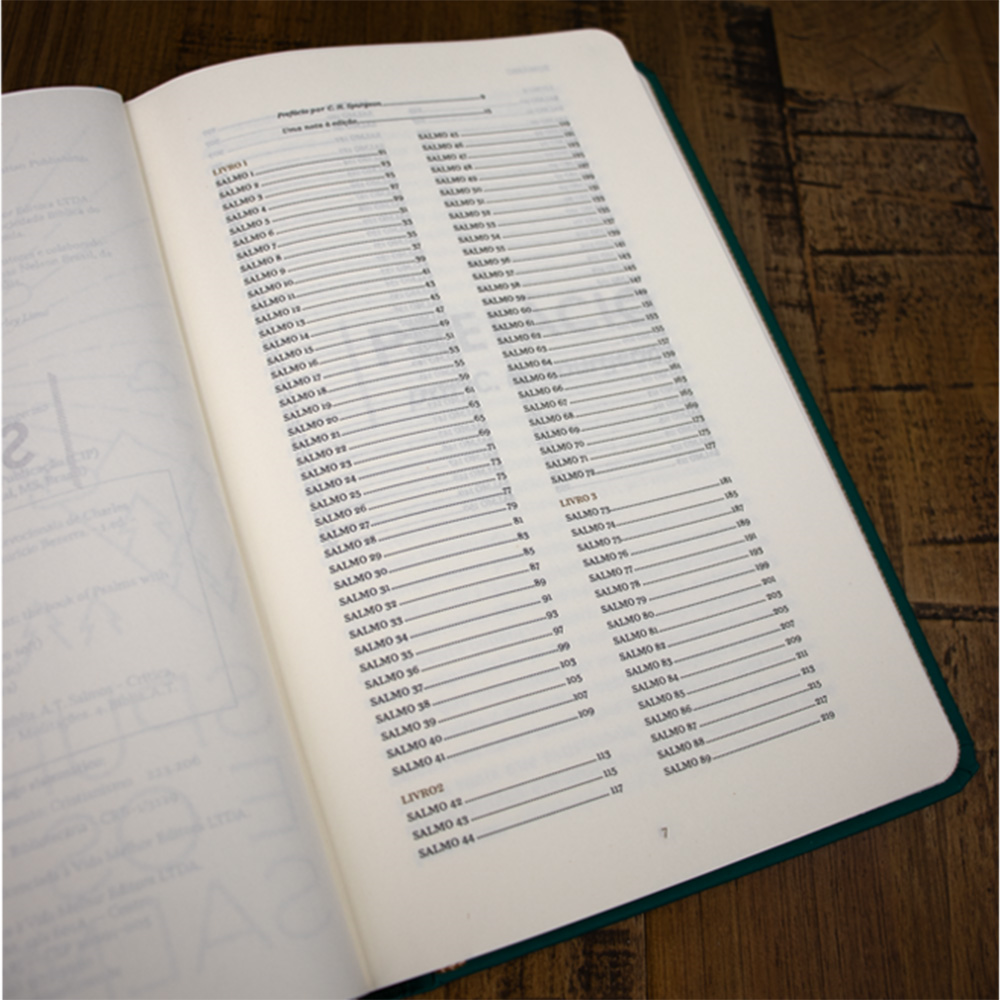 Prefácio por C. H. Spurgeon 9
Uma nota à edição 15
LIVRO 1
SALMO 1 21
SALMO 2 23
SALMO 3 25
SALMO 4 27
SALMO 5 29
SALMO 6 31
SALMO 7 33
SALMO 8 35
SALMO 9 37
SALMO 10 39
SALMO 11 41
SALMO 12 43
SALMO 13 45
SALMO 14 47
SALMO 15 49
SALMO 16 51
SALMO 17 53
SALMO 18 55
SALMO 19 59
SALMO 20 61
SALMO 21 63
SALMO 22 65
SALMO 23 69
SALMO 24 71
SALMO 25 73
SALMO 26 75
SALMO 27 77
SALMO 28 79
SALMO 29 81
SALMO 30 83
SALMO 31 85
SALMO 32 87
SALMO 33 89
SALMO 34 91
SALMO 35 93
SALMO 36 97
SALMO 37 99
SALMO 38 103
SALMO 39 105
SALMO 40 107
SALMO 41 109
LIVRO2
SALMO 42 113
SALMO 43 115
SALMO 44 117
SALMO 45 119
SALMO 46 121
SALMO 47 123
SALMO 48 125
SALMO 49 127
SALMO 50 129
SALMO 51 131
SALMO 52 133
SALMO 53 135
SALMO 54 137
SALMO 55 139
SALMO 56 141
SALMO 57 143
SALMO 58 145
SALMO 59 147
SALMO 60 149
SALMO 61 151
SALMO 62 153
SALMO 63 155
SALMO 64 157
SALMO 65 159
SALMO 66 161
SALMO 67 163
SALMO 68 165
SALMO 69 169
SALMO 70 173
SALMO 71 175
SALMO 72 177
LIVRO 3
SALMO 73 181
SALMO 74 185
SALMO 75 187
SALMO 76 189
SALMO 77 191
SALMO 78 193
SALMO 79 199
SALMO 80 201
SALMO 81 203
SALMO 82 205
SALMO 83 207
SALMO 84 209
SALMO 85 211
SALMO 86 213
SALMO 87 215
SALMO 88 217
SALMO 89 219
7